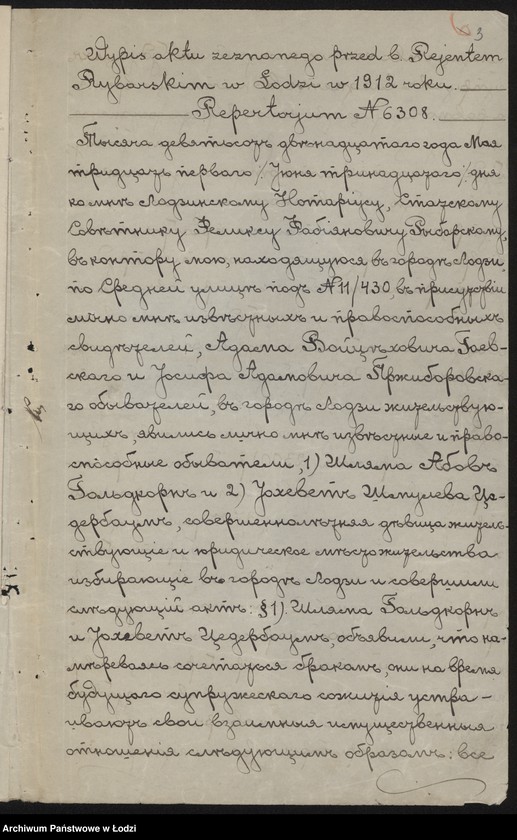 3
Wypis aktu zeznanego przed b. Rejentem
Rybarskim w Łodzi w 1912 roku.
Repertorjum № 6308.
Тысяча девятьсотъ двѣнадцатаго года Мая
тридцать перваго /Iюня тринадцатаго/ дня
ко мнѣ Лодзинскому Нотарiусу, Статскому
Совѣтнику Феликсу Фабiяновичу Рыбарскому,
въ контору мою, находящуюся въ городѣ Лодзи
по Средней улицѣ подъ № 11/430, въ присутствiи
лично мнѣ извѣстныхъ и правоспособныхъ
свидѣтелей, Адама Войцѣховича Гаев-
скаго и Iосифа Адамовича Пржиборовска-
го обывателей, въ городѣ Лодзи жительствую-
щихъ, явились лично мнѣ извѣстные и право-
способные обыватели, 1) Шляма Абовъ
Гольдкорнъ и 2) Iохеветъ Шмулева Це-
дербаумъ, совершеннолѣтняя дѣвица житель-
ствующiе и юридическое мѣстожительства
избирающiе въ городѣ Лодзи и совершили
слѣдующiй актъ: §1) Шляма Гольдкорнъ
и Iохеветъ Цедербаумъ, объявили, что на-
мѣреваясь сочетаться бракомъ, они на время
будущаго супружескаго сожитiя устра-
иваютъ свои взаимныя имущественныя
отношенiя слѣдующимъ образомъ: все
Archiwum Państwowe w Łodzi